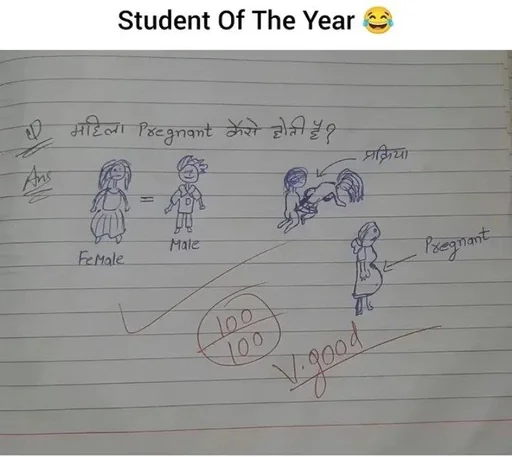 Student Of The Year 😂
Q महिला Pregnant कैसे होती है?
Ans
=
FeMale
Male
प्रक्रिया
Pregnant
100
100
V.good